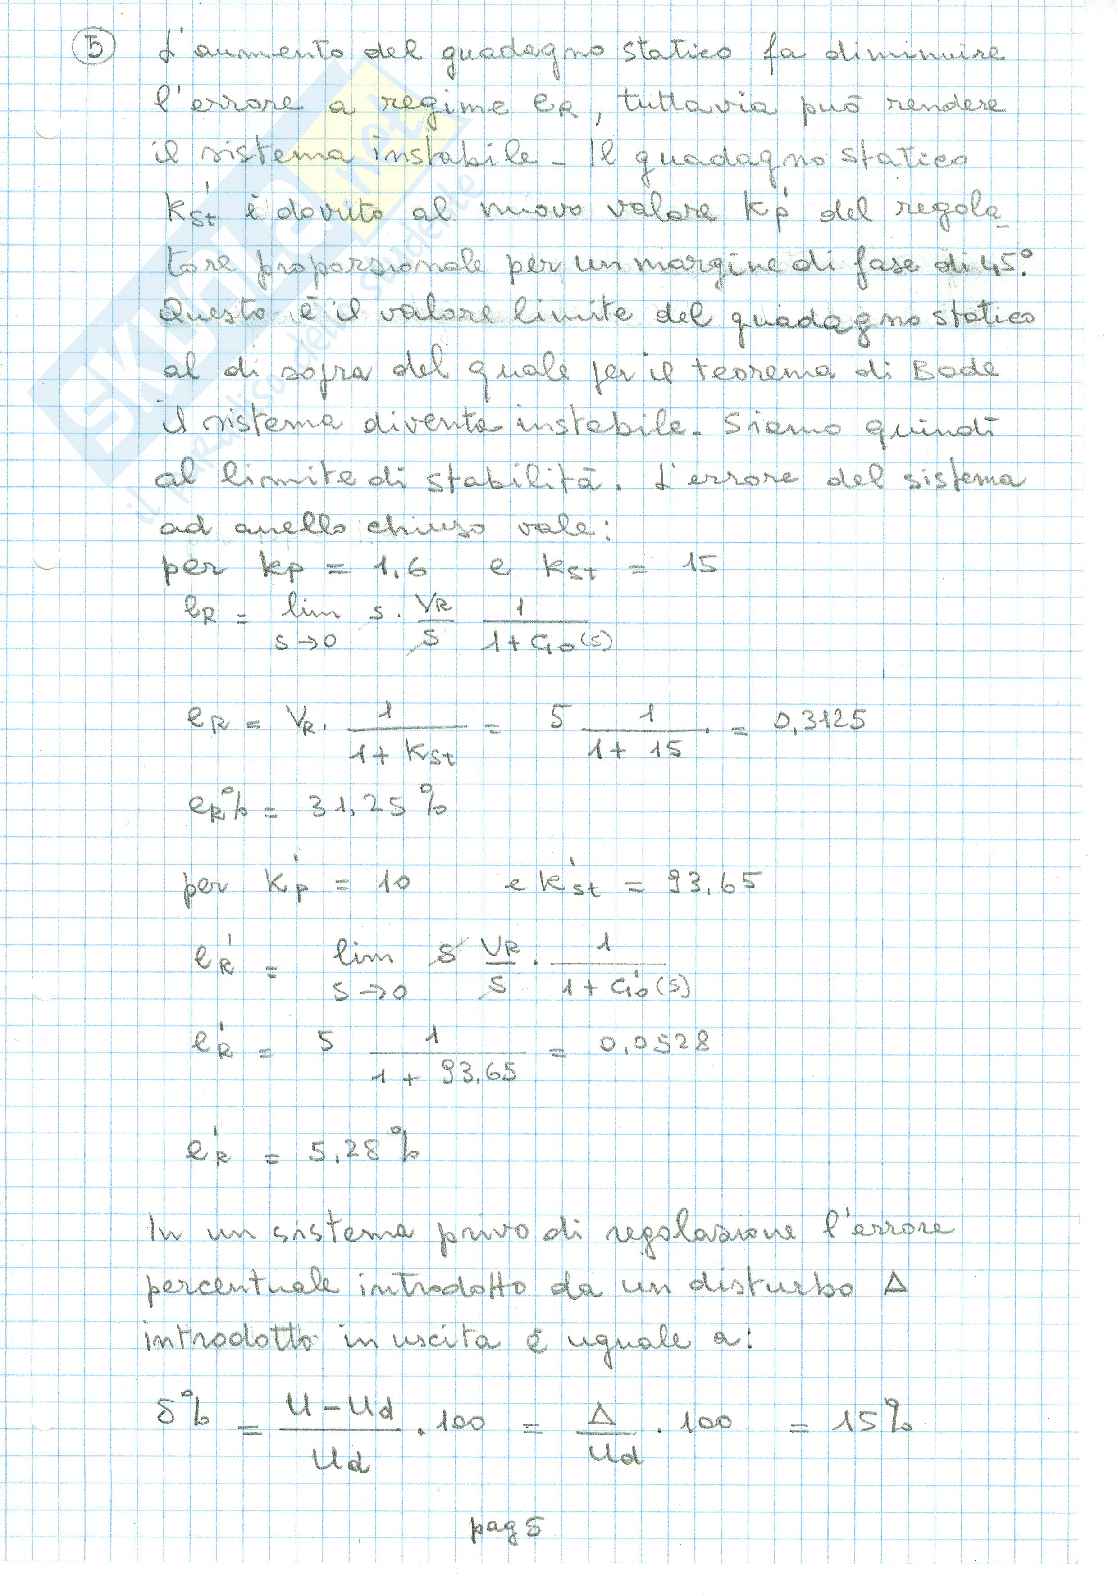 5 L'aumento del guadagno statico fa diminuire
l'errore a regime eR, tuttavia può rendere
il sistema instabile - Il guadagno statico
K'st è dovuto al nuovo valore K'p del regola_
tore proporzionale per un margine di fase di 45°.
Questo è il valore limite del guadagno statico
al di sopra del quale per il teorema di Bode
il sistema diventa instabile. Siamo quindi
al limite di stabilità. L'errore del sistema
ad anello chiuso vale:
per Kp = 1,6 e Kst = 15
eR = lim s→0 s · VR/s 1/(1+Go(s))
eR = VR · 1/(1+Kst) = 5 1/(1+15) · = 0,3125
eR% = 31,25%
per K'p = 10 e K'st = 93,65
e'R = lim s→0 s VR/s · 1/(1+G'o(s))
e'R = 5 1/(1+93,65) = 0,0528
e'R = 5,28%
In un sistema privo di regolazione l'errore
percentuale introdotto da un disturbo Δ
introdotto in uscita è uguale a:
δ% = (U-Ud)/Ud · 100 = Δ/Ud · 100 = 15%
pag 5
SKUOLA.net
il paradiso dello studente